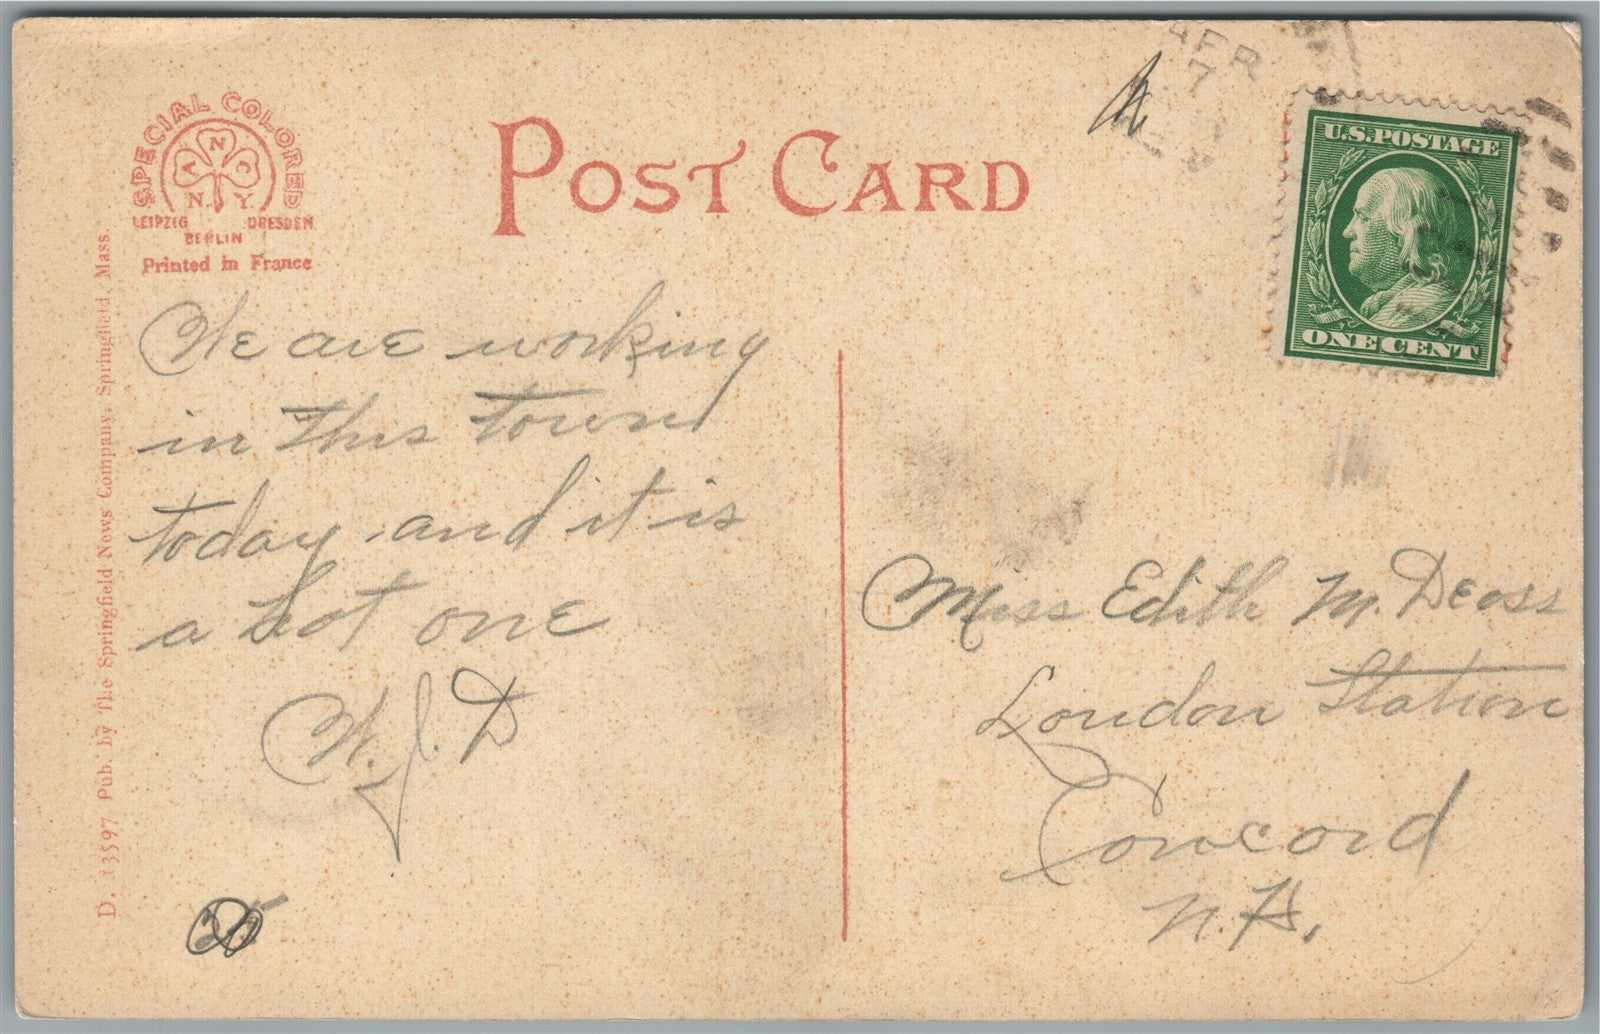 SPECIAL COLORED
A N CO
N. Y.
LEIPZIG DRESDEN
BERLIN
Printed in France
POST CARD
APR
7
U.S. POSTAGE
ONE CENT
D. 13597 Pub. by The Springfield News Company, Springfield, Mass.
We are working
in this town
today and it is
a hot one
W. J. D
Miss Edith M. Deoss
London Station
Concord
N. H.